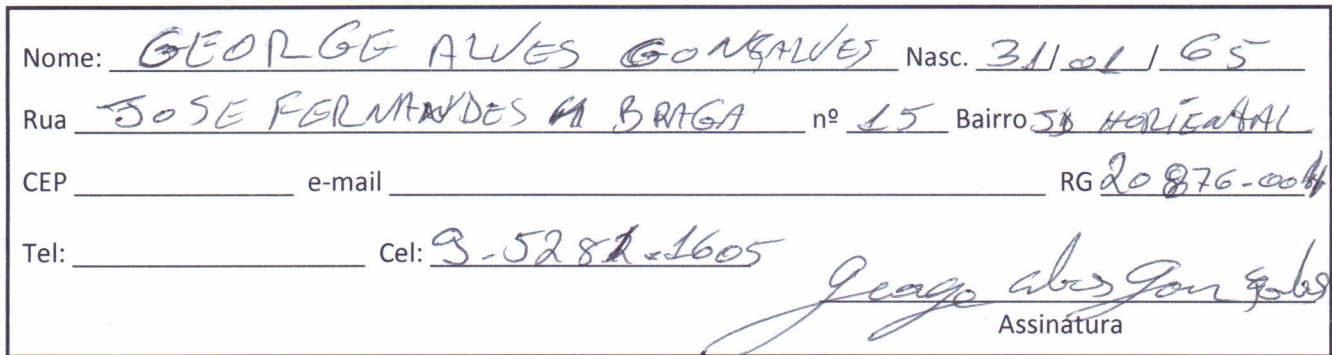 Nome: GEORGE ALVES GONÇALVES Nasc. 31/01/65
Rua JOSE FERNANDES BRAGA nº 15 Bairro HORIENTAL
CEP e-mail RG 20876-00
Tel: Cel: 9-5281-1605
George alves Gonçalves
Assinatura